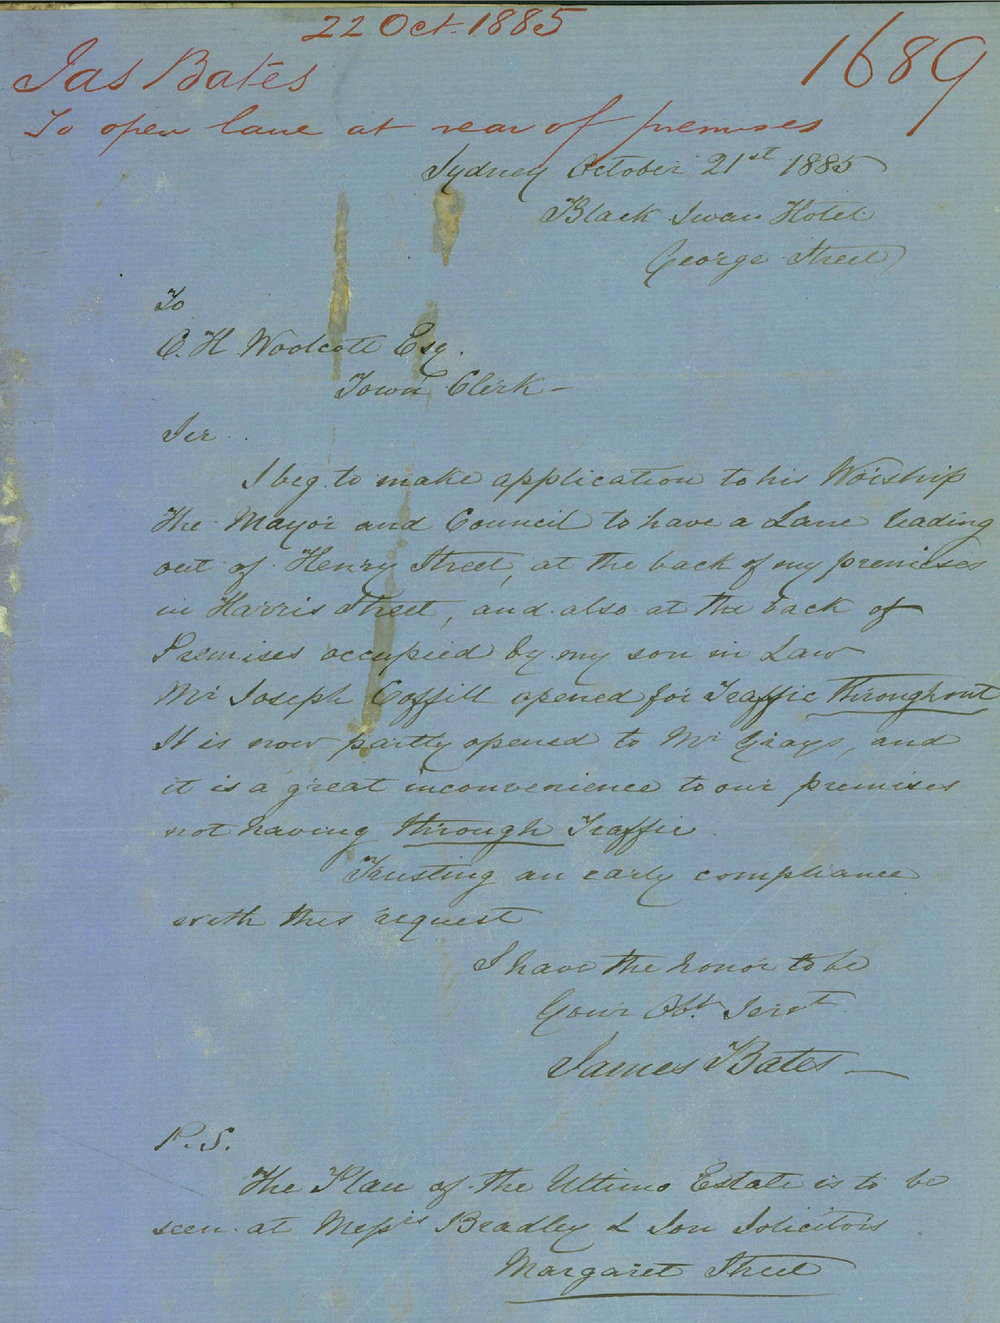 22 Oct. 1885
1689
Jas Bates
To open lane at rear of premises
Sydney October 21st 1885
Black Swan Hotel
George Street
To
C. H Woolcott Esq.
Town Clerk -
Sir
I beg to make application to his Worship
the Mayor and Council to have a Lane leading
out of Henry Street, at the back of my premises
in Harris Street, and also at the back of
Premises occupied by my son in Law
Mr Joseph Coffill opened for Traffic throughout
It is now partly opened to Mr Grays, and
it is a great inconvenience to our premises
not having through Traffic.
Trusting an early compliance
with this request
I have the honor to be
Your Obt. Servt
James Bates -
P.S.
The Plan of the Ultimo Estate is to be
seen at Messrs Bradley & Son Solicitors
Margaret Street